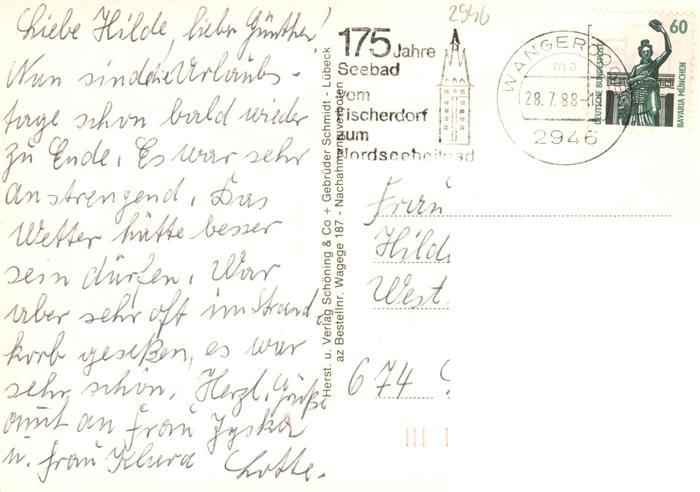 Liebe Hilde, lieber Günther!
Nun sind die Urlaubs-
tage schon bald wieder
zu Ende. Es war sehr
anstrengend. Das
Wetter hätte besser
sein dürfen. War
aber sehr oft im Strand
korb geseßen, es war
sehr schön. Herzl. Grüße
auch an Frau
u. Frau Lotte.
Herst. u. Verlag Schöning & Co + Gebrüder Schmidt - Lübeck
az Bestellnr. Wagege 187 - Nachahmung verboten
2946
175 Jahre
Seebad
vom
Fischerdorf
zum
Nordseeheilbad
WANGEROO
ma
28.7.88-1
2946
60
DEUTSCHE BUNDESPOST
BAVARIA MÜNCHEN
Frau
Hild
West
674